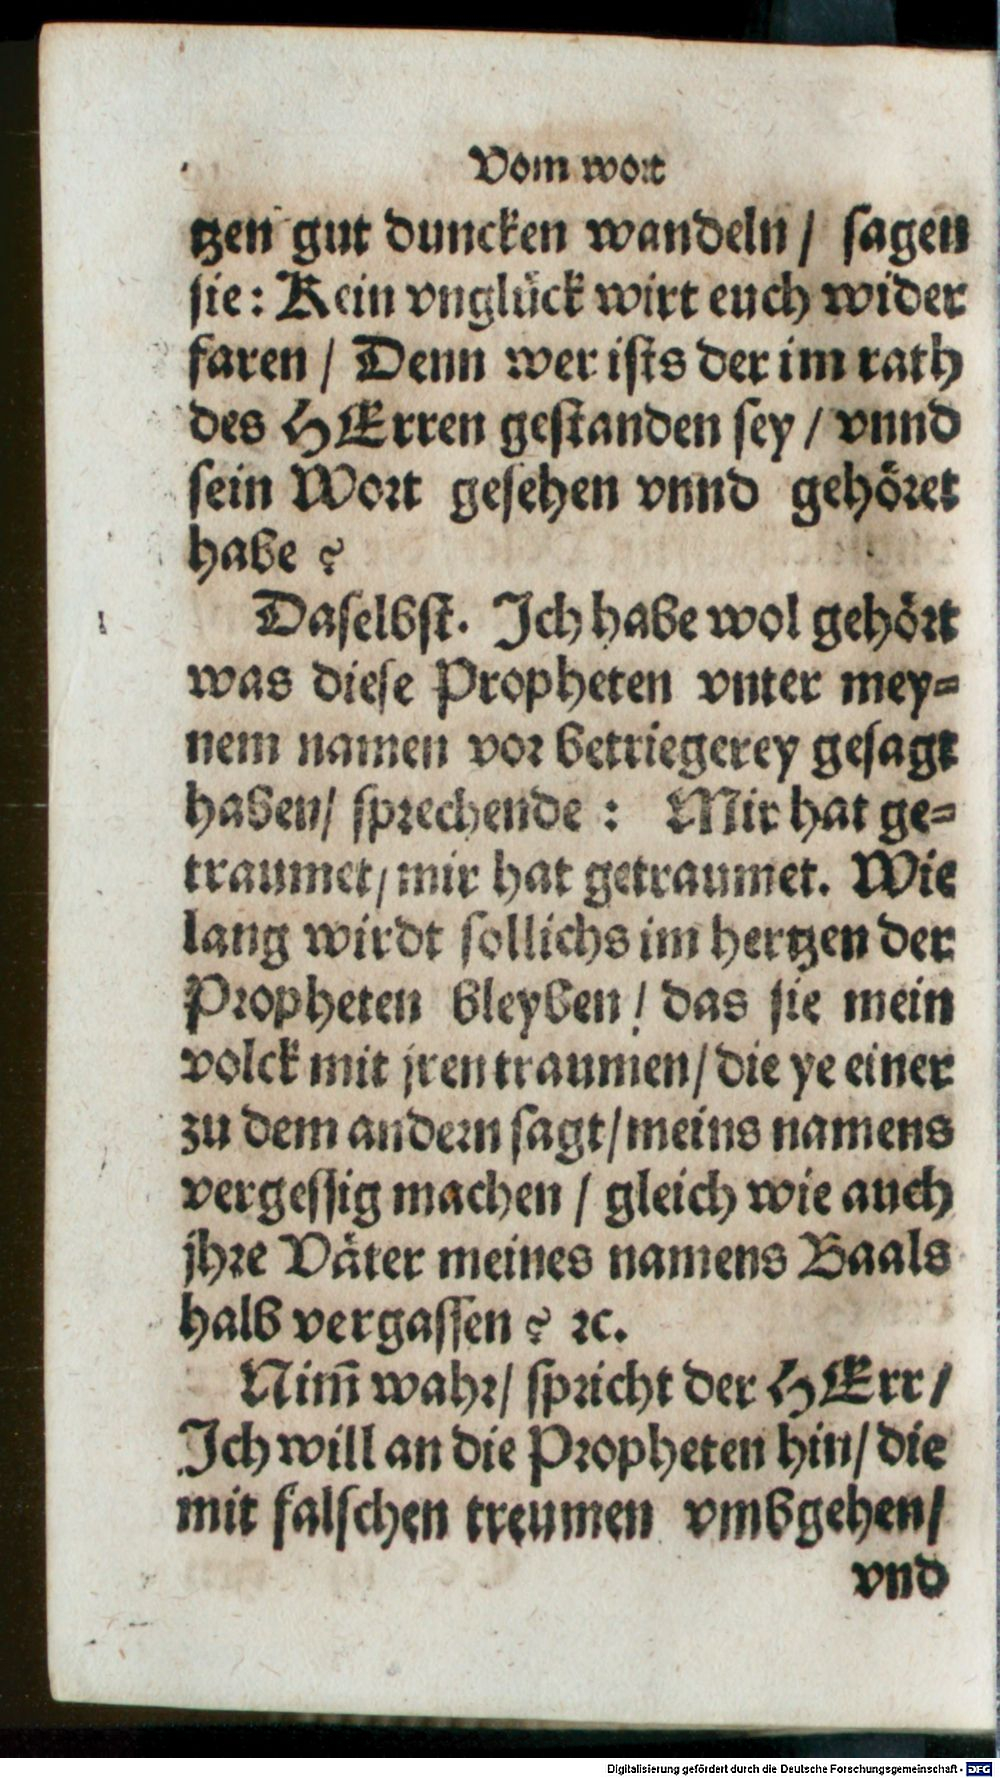 Vom wort
tzen gut duncken wandeln / sagen
sie: Kein vnglück wirt euch wider
faren / Denn wer ists der im rath
des HErren gestanden sey / vnnd
sein Wort gesehen vnnd gehöret
habe ?
Daselbst. Ich habe wol gehört
was diese Propheten vnter mey=
nem namen vor betriegerey gesagt
haben/ sprechende : Mir hat ge=
traumet/ mir hat getraumet. Wie
lang wirdt sollichs im hertzen der
Propheten bleyben / das sie mein
volck mit jren traumen/ die ye einer
zu dem andern sagt/ meins namens
vergessig machen / gleich wie auch
jhre Väter meines namens Baals
halb vergassen ? ꝛc.
Nim̄ wahr/ spricht der HErr /
Ich will an die Propheten hin/ die
mit falschen treumen vmbgehen/
vnd
Digitalisierung gefördert durch die Deutsche Forschungsgemeinschaft - DFG